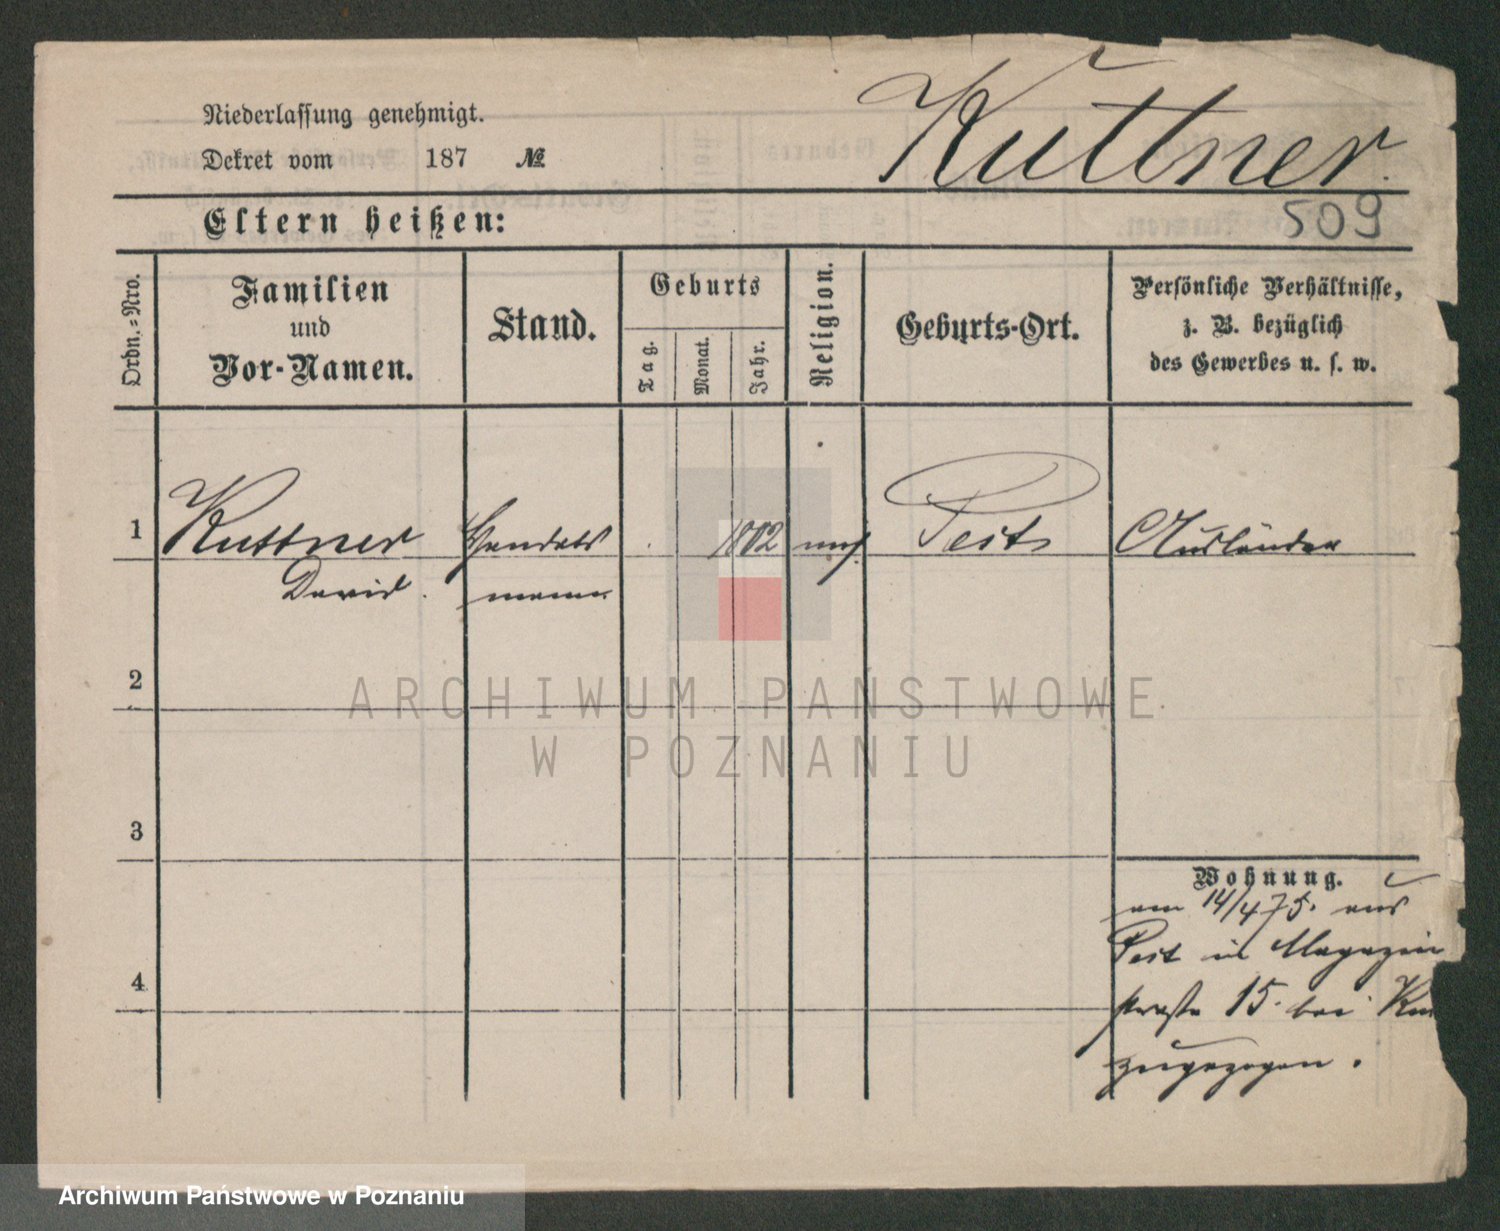 Niederlassung genehmigt.
Dekret vom 187 №
Kuttner.
509
Eltern heißen:
Ordn.-Nro.
Familien
und
Vor-Namen.
Stand.
Geburts
Tag.
Monat.
Jahr.
Religion.
Geburts-Ort.
Persönliche Verhältnisse,
z. B. bezüglich
des Gewerbes u. s. w.
1 Kuttner Handels 1802 mos. Pest Ausländer
David. mann
2
3
4
Wohnung.
am 14/4 75. aus
Pest in Magazin
straße 15. bei
zugezogen.
ARCHIWUM PAŃSTWOWE
W POZNANIU
Archiwum Państwowe w Poznaniu